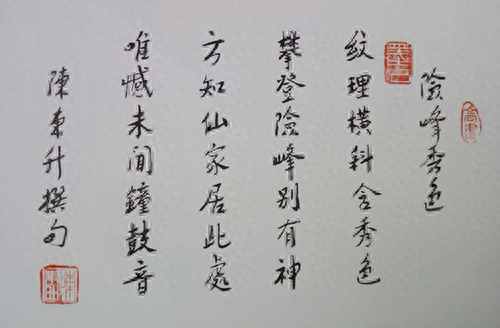 險峰秀色
紋理橫斜含秀色
攀登險峰別有神
方知仙家居此處
唯憾未聞鐘鼓音
陳東升撰句